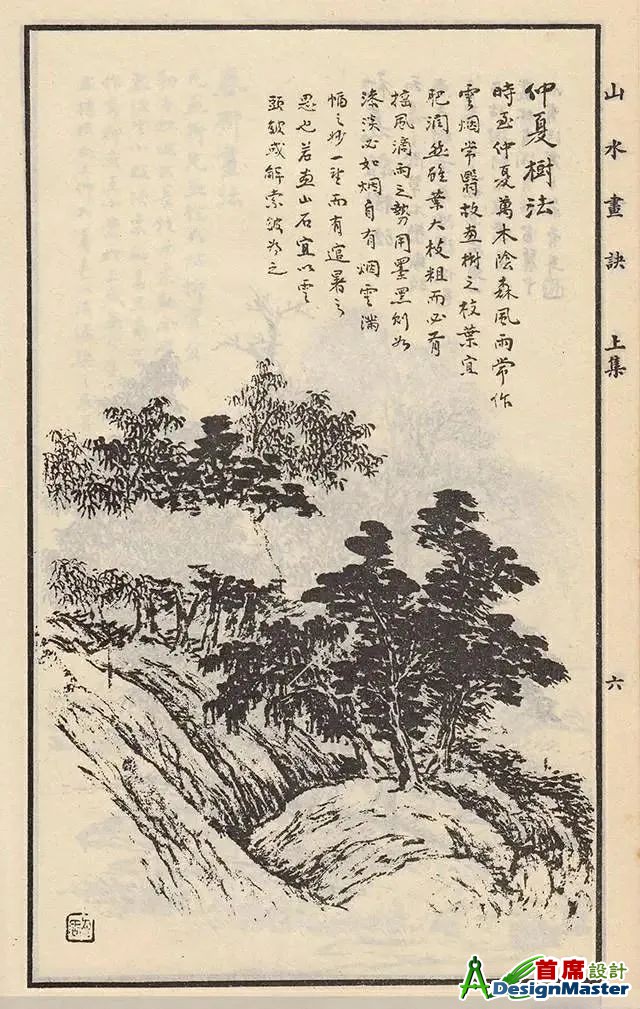 山水畫訣 上集
六
仲夏樹法
時至仲夏萬木陰森風雨常作
雲烟常翳故畫樹之枝葉宜
肥潤然雖葉大枝粗而必有
搖風滴雨之勢用墨黑則如
漆淡必如烟自有烟雲滿
幅之妙一望而有逭暑之
思也若畫山石宜以雲
頭皴或解索皴為之
首席設計
DesignMaster